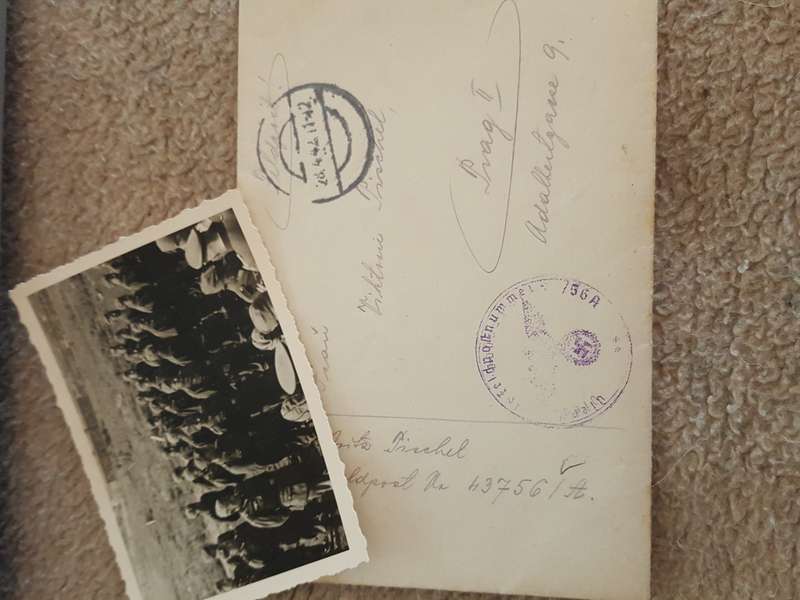 26.4.42.11-12.
Viktorie Pischel,
Prag II
Adalbertgasse 9.
Feldpostnummer 756A
Pischel
43756/A.